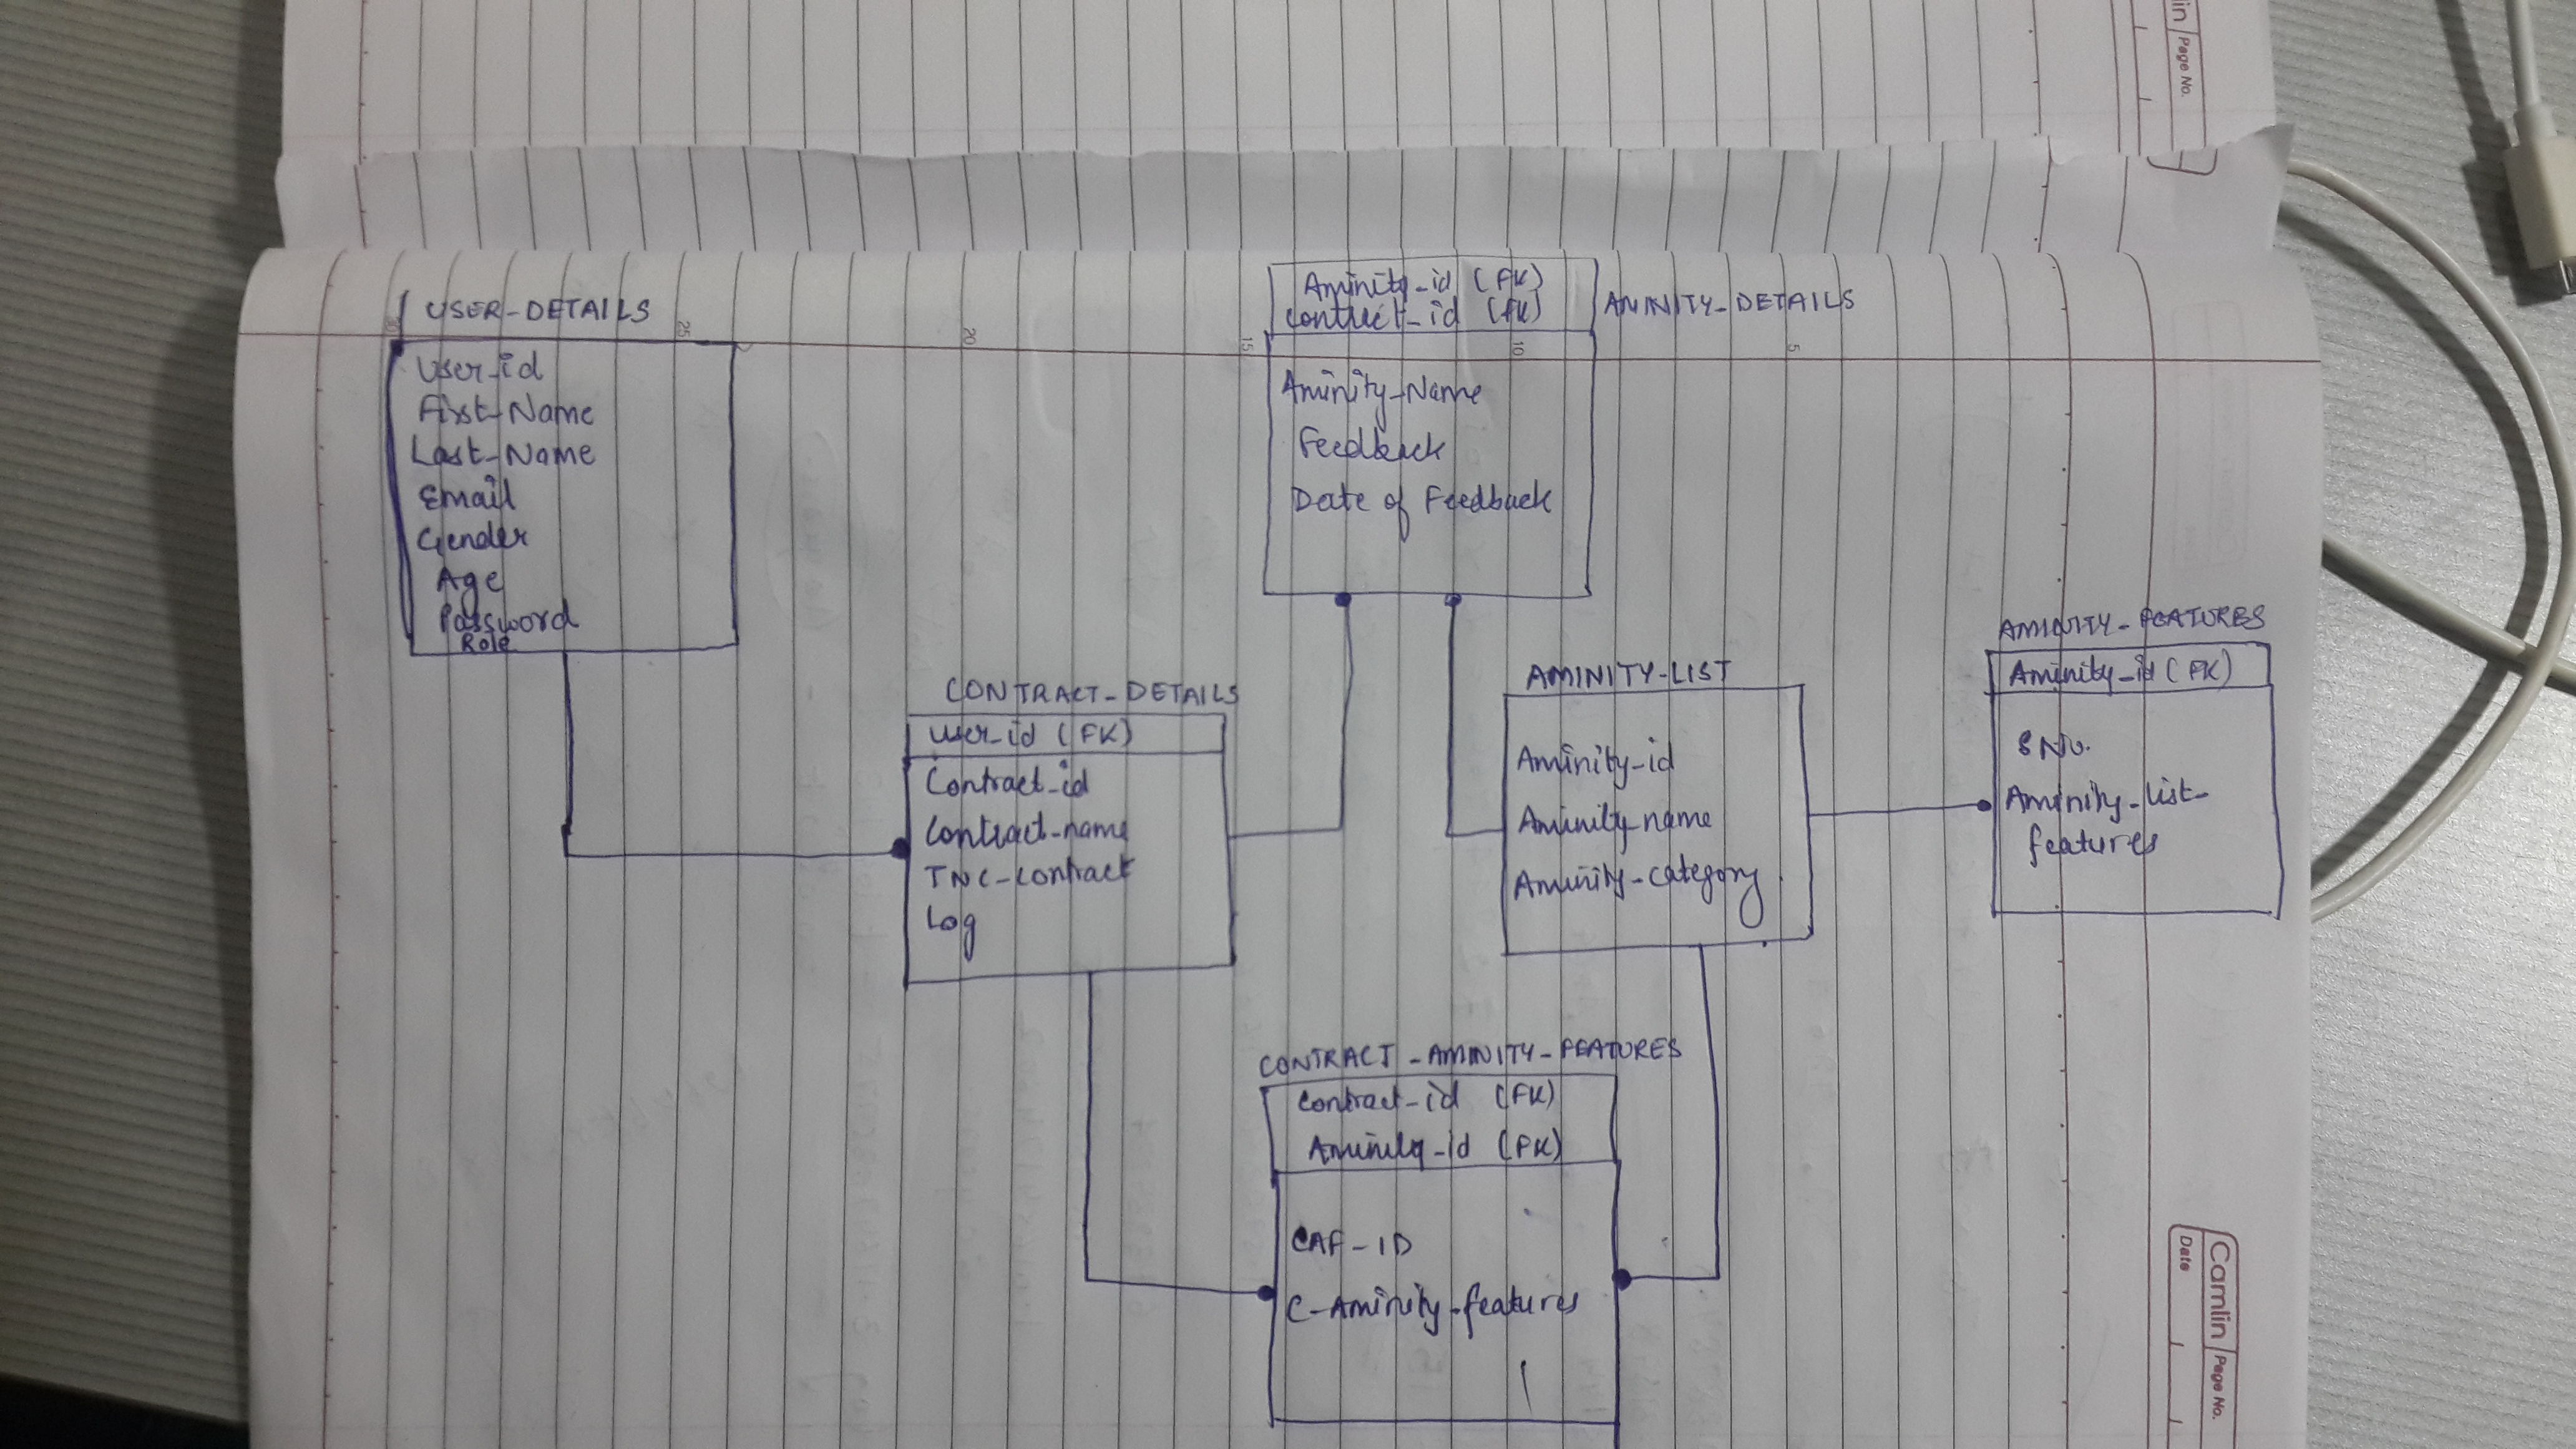 USER-DETAILS
User_id
First-Name
Last-Name
Email
Gender
Age
Password
Role
CONTRACT_DETAILS
User_id (FK)
Contract_id
Contract-name
TNC-contract
Log
AMINITY-DETAILS
Aminity-id (FK)
Contract-id (FK)
Aminity-Name
Feedback
Date of Feedback
CONTRACT-AMINITY-FEATURES
Contract-id (FK)
Aminity-id (FK)
CAF-ID
C-Aminity-features
AMINITY-LIST
Aminity-id
Aminity-name
Aminity-category
AMINITY-FEATURES
Aminity-id (FK)
SNo.
Aminity-List-
features
30
25
20
15
10
5
Camlin
Page No.
Date
Page No.